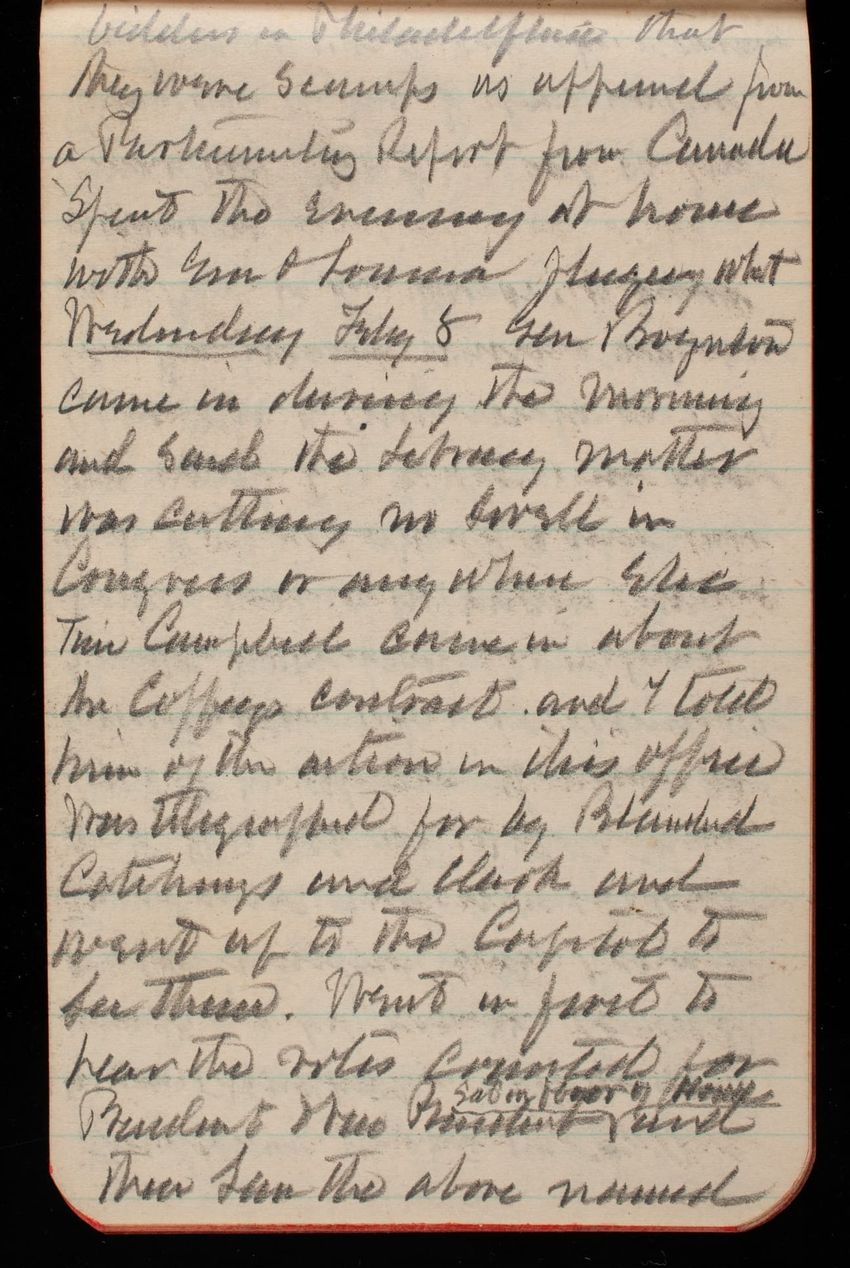 bidders in Philadelphia that
they were Scamps as appeared from
a Parliamentary Report from Canada
Spent the evening at home
with Genl & Louisa playing whist
Wednesday Feby 8 Gen Boynton
came in during the morning
and said the Library matter
was cutting no swell in
Congress or anywhere Else
Tim Campbell came in about
the Coffey contract. and I told
him of the action in this office
Was telegraphed for by Blanchard
Catchings and Clark and
went up to the Capitol to
See them. Went in first to
hear the votes counted for
Sat on floor of House
President Vice President and
then Saw the above named